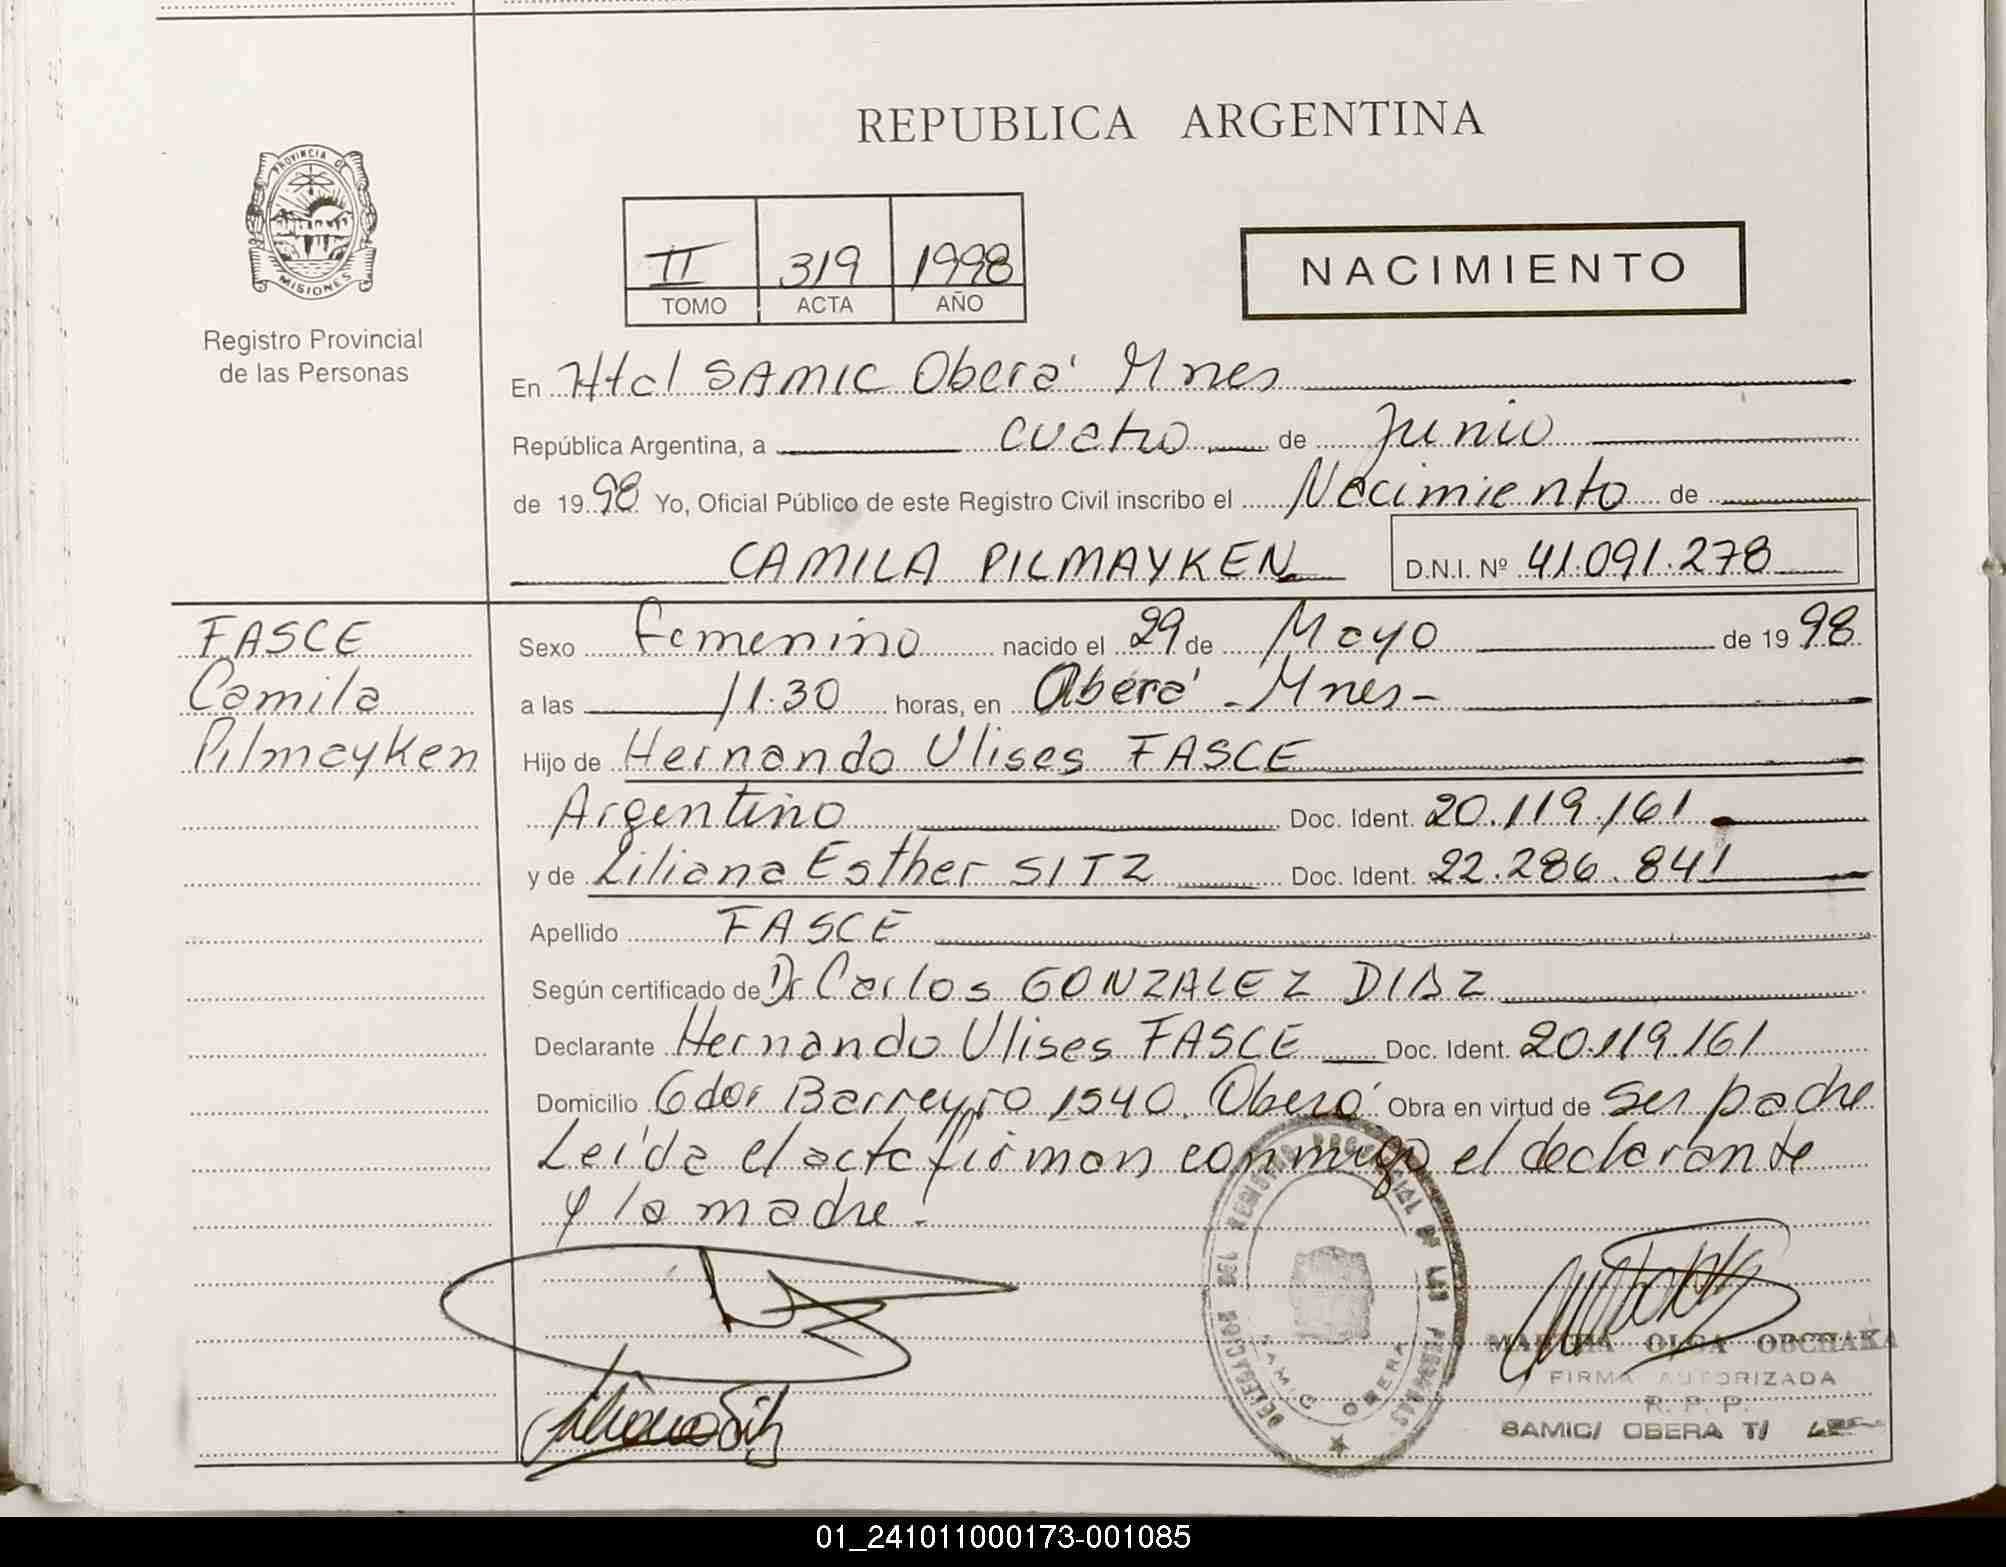 REPUBLICA ARGENTINA
PROVINCIA DE
MISIONES
Registro Provincial
de las Personas
II 319 1998
TOMO ACTA AÑO
NACIMIENTO
En Htal SAMIC Oberá Mnes
República Argentina, a cuatro de Junio
de 1998 Yo, Oficial Público de este Registro Civil inscribo el Nacimiento de
CAMILA PILMAYKEN D.N.I. Nº 41.091.278
FASCE
Camila
Pilmayken
Sexo Femenino nacido el 29 de Mayo de 1998
a las 11.30 horas, en Oberá - Mnes -
Hijo de Hernando Ulises FASCE
Argentino Doc. Ident. 20.119.161
y de Liliana Esther SITZ Doc. Ident. 22.286.841
Apellido FASCE
Según certificado de Dr Carlos GONZALEZ DIAZ
Declarante Hernando Ulises FASCE Doc. Ident. 20.119.161
Domicilio Gdor Barreyro 1540. Oberá Obra en virtud de ser padre
Leída el acta firman conmigo el declarante
y la madre.
DELEGACION DEL REGISTRO PROVINCIAL DE LAS PERSONAS
SAMIC OBERA
Liliana Sitz
MARTHA OLGA OBCHAKA
FIRMA AUTORIZADA
R. P. P.
SAMIC/ OBERA T/
01_241011000173-001085